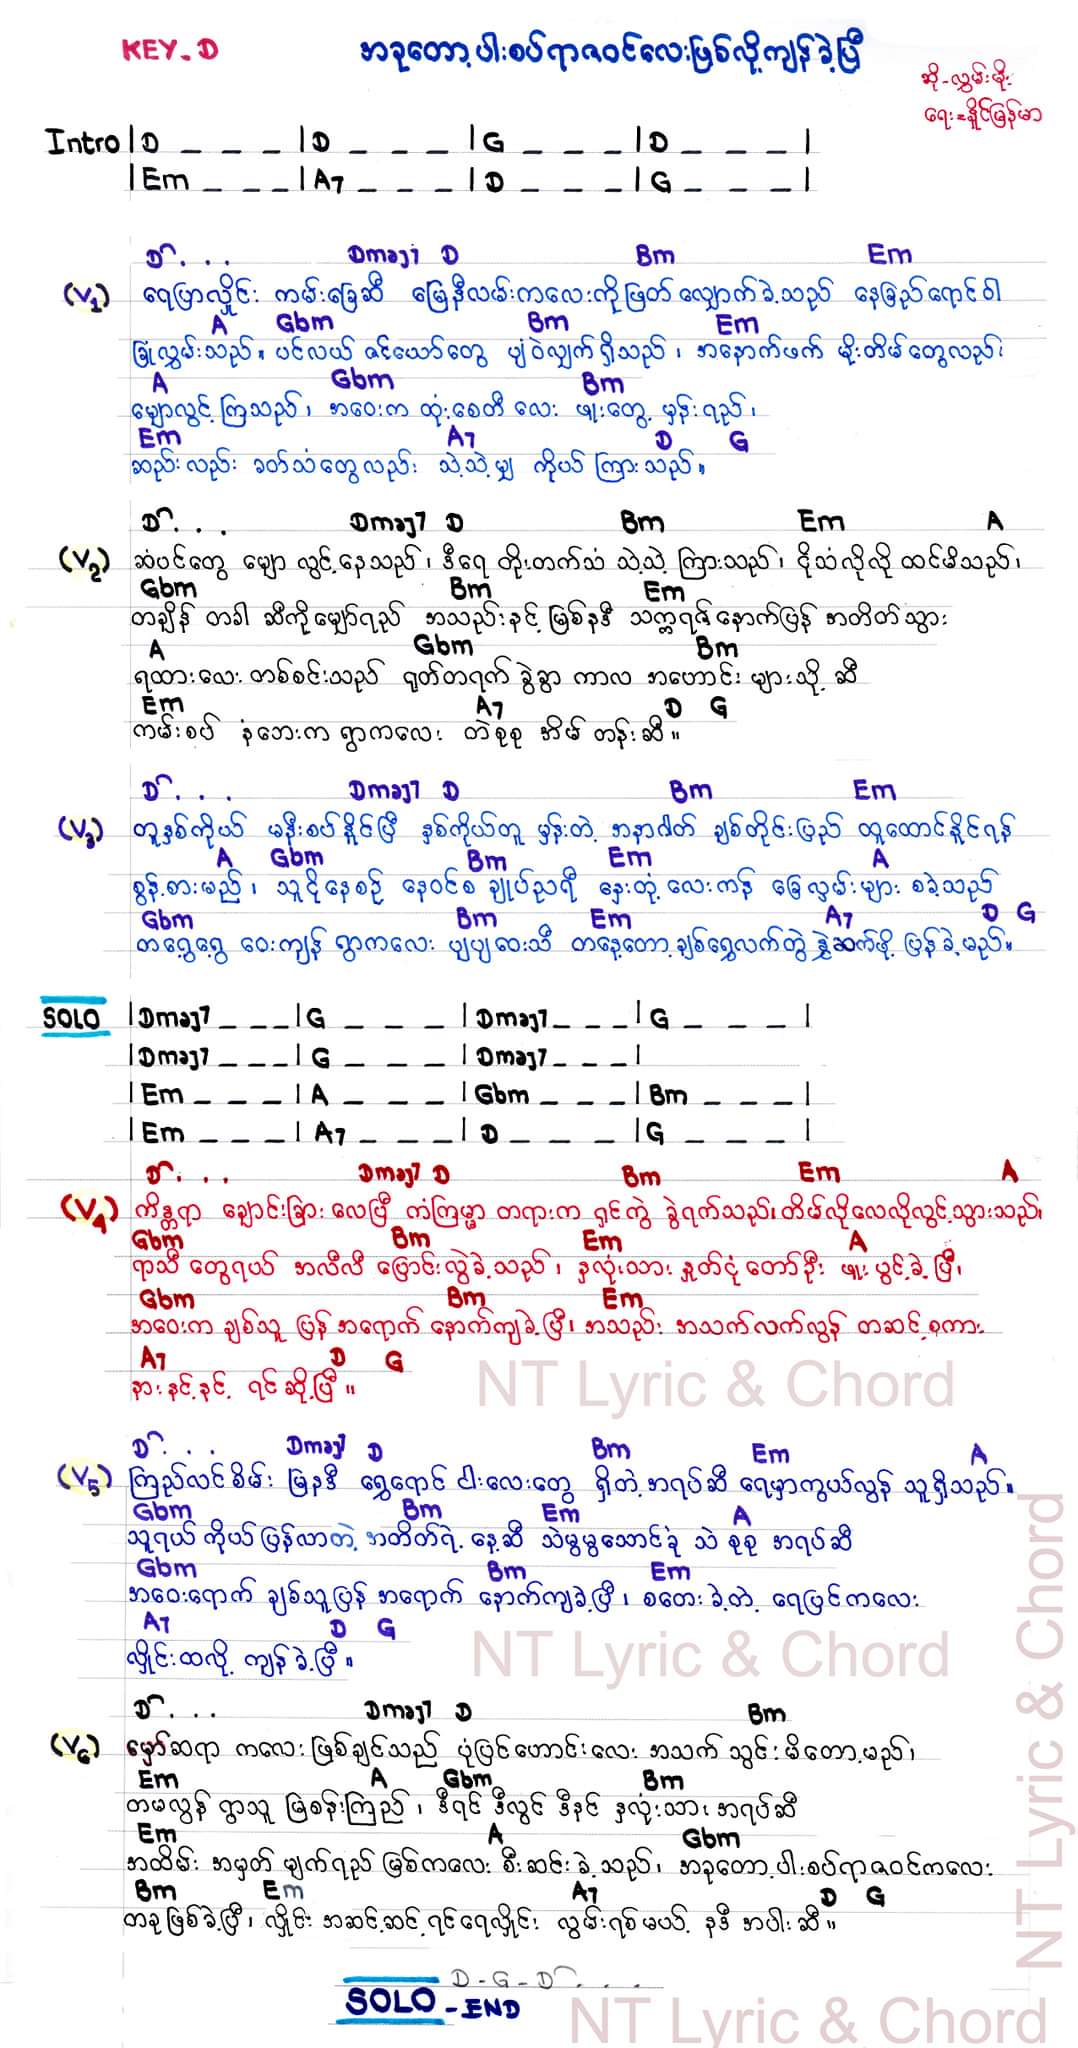 KEY-D
အခုတော့ပါးစပ်ရာဇဝင်လေးဖြစ်လို့ကျန်ခဲ့ပြီ
ဆို-လွှမ်းမိုး
ရေး=နိူင်မြန်မာ
Intro |D _ _ _ |D _ _ _ |G _ _ _ |D _ _ _ |
|Em _ _ _ |A7 _ _ _ |D _ _ _ |G _ _ _ |
D . . . Dmaj7 D Bm Em
(V1) ရေပြာလှိုင်း ကမ်းခြေဆီ မြေနီလမ်းကလေးကိုဖြတ်လျှောက်ခဲ့သည် နေခြည်ရောင်ဝါ
A Gbm Bm Em
ခြုံလွှမ်းသည်။ ပင်လယ် ဇင်ယော်တွေ ပျံဝဲလျှက်ရှိသည်၊ အနောက်ဖက် မိုးတိမ်တွေလည်း
A Gbm Bm
မျောလွင့်ကြသည်၊ အဝေးက ထုံးစေတီ လေး ဖူးတွေ့ မှန်းရည်၊
Em A7 D G
ဆည်းလည်း ခတ်သံတွေလည်း သဲ့သဲ့မျှ ကိုယ်ကြားသည်။
D . . . Dmaj7 D Bm Em A
(V2) ဆံပင်တွေ မျော လွင့်နေသည်၊ ဒီရေ တိုးတက်သံ သဲ့သဲ့ ကြားသည်၊ ငိုသံလိုလို ထင်မိသည်၊
Gbm Bm Em
တချိန် တခါ ဆီကိုမျှော်ရည် အသည်းနှင့် မြစ်နဒီ သက္ကရဇ်နောက်ပြန် အတိတ်သွား
A Gbm Bm
ရထားလေး တစ်စင်းသည် ရုတ်တရက် ခွဲခွာ ကာလ အဟောင်း များသို့ ဆီ
Em A7 D G
ကမ်းစပ် နံဘေးက ရွာကလေး တဲစုစု အိမ် တန်းဆီ။
D . . . Dmaj7 D Bm Em
(V3) တူနှစ်ကိုယ် မနီးစပ်နိူင်ပြီ နှစ်ကိုယ်တူ မှန်းတဲ့ အနာဂါတ် ချစ်တိုင်းပြည် ထူထောင်နိူင်ရန်
A Gbm Bm Em A
စွန့်စားမည်၊ သူငိုနေစဉ် နေဝင်စ ချုပ်ညရီ နှေးတုံ့လေးကန် ခြေလှမ်းများ စခဲ့သည်
Gbm Bm Em A7 D G
တရွေ့ရွေ့ ဝေးကျန် ရွာကလေး ပျပျဝေးသီ တနေ့တော့ချစ်ရွှေလက်တွဲ နွှဲဆက်ဖို့ ပြန်ခဲ့မည်။
SOLO |Dmaj7 _ _ _ |G _ _ _ |Dmaj7 _ _ _ |G _ _ _ |
|Dmaj7 _ _ _ |G _ _ _ |Dmaj7 _ _ _ |
|Em _ _ _ |A _ _ _ |Gbm _ _ _ |Bm _ _ _ |
|Em _ _ _ |A7 _ _ _ |D _ _ _ |G _ _ _ |
D . . . Dmaj7 D Bm Em A
(V4) ကိန္တရာ ချောင်းခြား လေပြီ ကံကြမ္မာ တရားက ရှင်ကွဲ ခွဲရက်သည်၊ တိမ်လိုလေလိုလွင့်သွားသည်၊
Gbm Bm Em A
ရာသီ တွေရယ် အလီလီ ပြောင်းလွဲခဲ့သည်၊ နှလုံးသား နှုတ်ငုံ တော်ဦး ဖူးပွင့်ခဲ့ပြီ၊
Gbm Bm Em
အဝေးက ချစ်သူ ပြန်အရောက် နောက်ကျခဲ့ပြီ၊ အသည်း အသက်လက်လွန် တဆင့်စကား
A7 D G
နားနှင့်နှင့် ရင်ဆို့ပြီ။
NT Lyric & Chord
D . . . Dmaj7 D Bm Em A
(V5) ကြည်လင်စိမ်း မြနဒီ ရွှေရောင် ငါးလေးတွေ ရှိတဲ့အရပ်ဆီ ရေမှာကွယ်လွန် သူရှိသည်။
Gbm Bm Em A
သူ့ရယ် ကိုယ်ပြန်လာတဲ့ အတိတ်ရဲ့နေ့ဆီ သဲမွမွသောင်ခုံ သဲ စုစု အရပ်ဆီ
Gbm Bm Em
အဝေးရောက် ချစ်သူပြန် အရောက် နောက်ကျခဲ့ပြီ၊ စတေးခဲ့တဲ့ ရေပြင်ကလေး
A7 D G
လှိုင်းထလို့ ကျန်ခဲ့ပြီ။
NT Lyric & Chord
D . . . Dmaj7 D Bm
(V6) မှော်ဆရာ ကလေးဖြစ်ချင်သည် ပုံပြင်ဟောင်းလေး အသက် သွင်းမိတော့မည်၊
Em A Gbm Bm
တမလွန် ရွာသူ မြစန်းကြည်၊ ဒီရင် ဒီလွင် ဒီနှင် နှလုံးသား အရပ်ဆီ
Em A Gbm
အထိမ်း အမှတ် မျက်ရည်မြစ်ကလေး စီးဆင်းခဲ့သည်၊ အခုတော့ပါးစပ်ရာဇဝင်ကလေး
Bm Em A7 D G
တခုဖြစ်ခဲ့ပြီ၊ လှိုင်း အဆင့်ဆင့်ရင်ရေလှိုင်း လွမ်းရစ်မယ့် နဒီအပါးဆီ။
D-G-D . . . .
SOLO -END
NT Lyric & Chord
NT Lyric & Chord